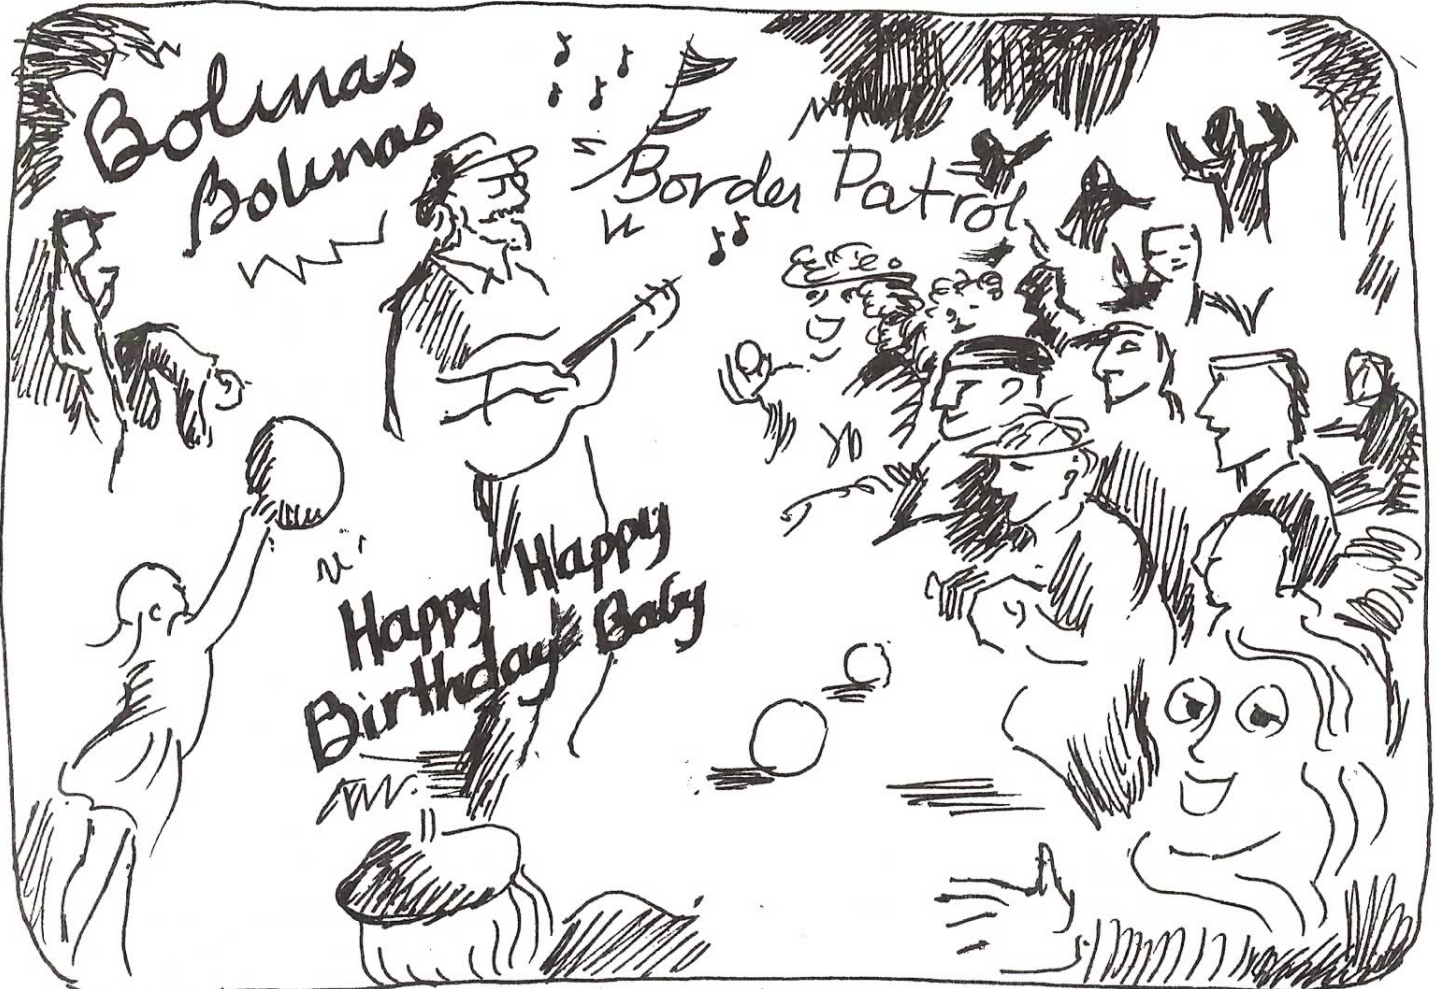 Bolinas
Bolinas
Border Patrol
Happy Happy
Birthday Baby